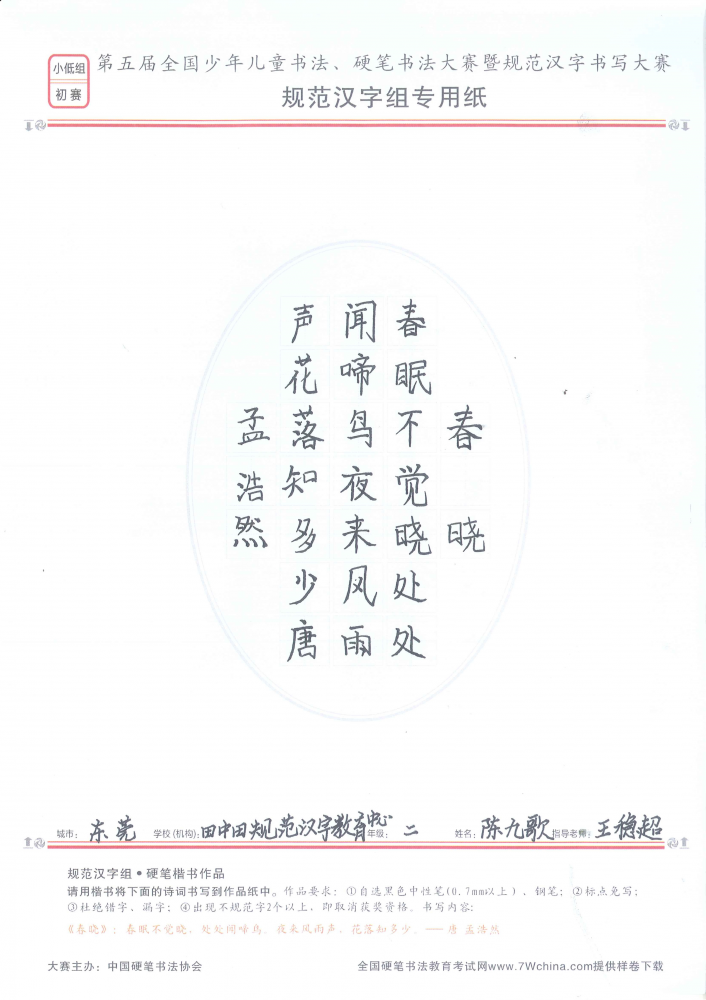 小低组
初赛
第五届全国少年儿童书法、硬笔书法大赛暨规范汉字书写大赛
规范汉字组专用纸
春晓
春眠不觉晓处处
闻啼鸟夜来风雨
声花落知多少唐
孟浩然
城市：东莞 学校(机构)：田中田规范汉字教育中心 年级：二 姓名：陈九歌 指导老师：王稳超
规范汉字组•硬笔楷书作品
请用楷书将下面的诗词书写到作品纸中。作品要求：①自选黑色中性笔(0.7mm以上)、钢笔；②标点免写；
③杜绝错字、漏字；④出现不规范字2个以上，即取消获奖资格。书写内容：
《春晓》：春眠不觉晓，处处闻啼鸟。夜来风雨声，花落知多少。——唐 孟浩然
大赛主办：中国硬笔书法协会
全国硬笔书法教育考试网www.7Wchina.com提供样卷下载